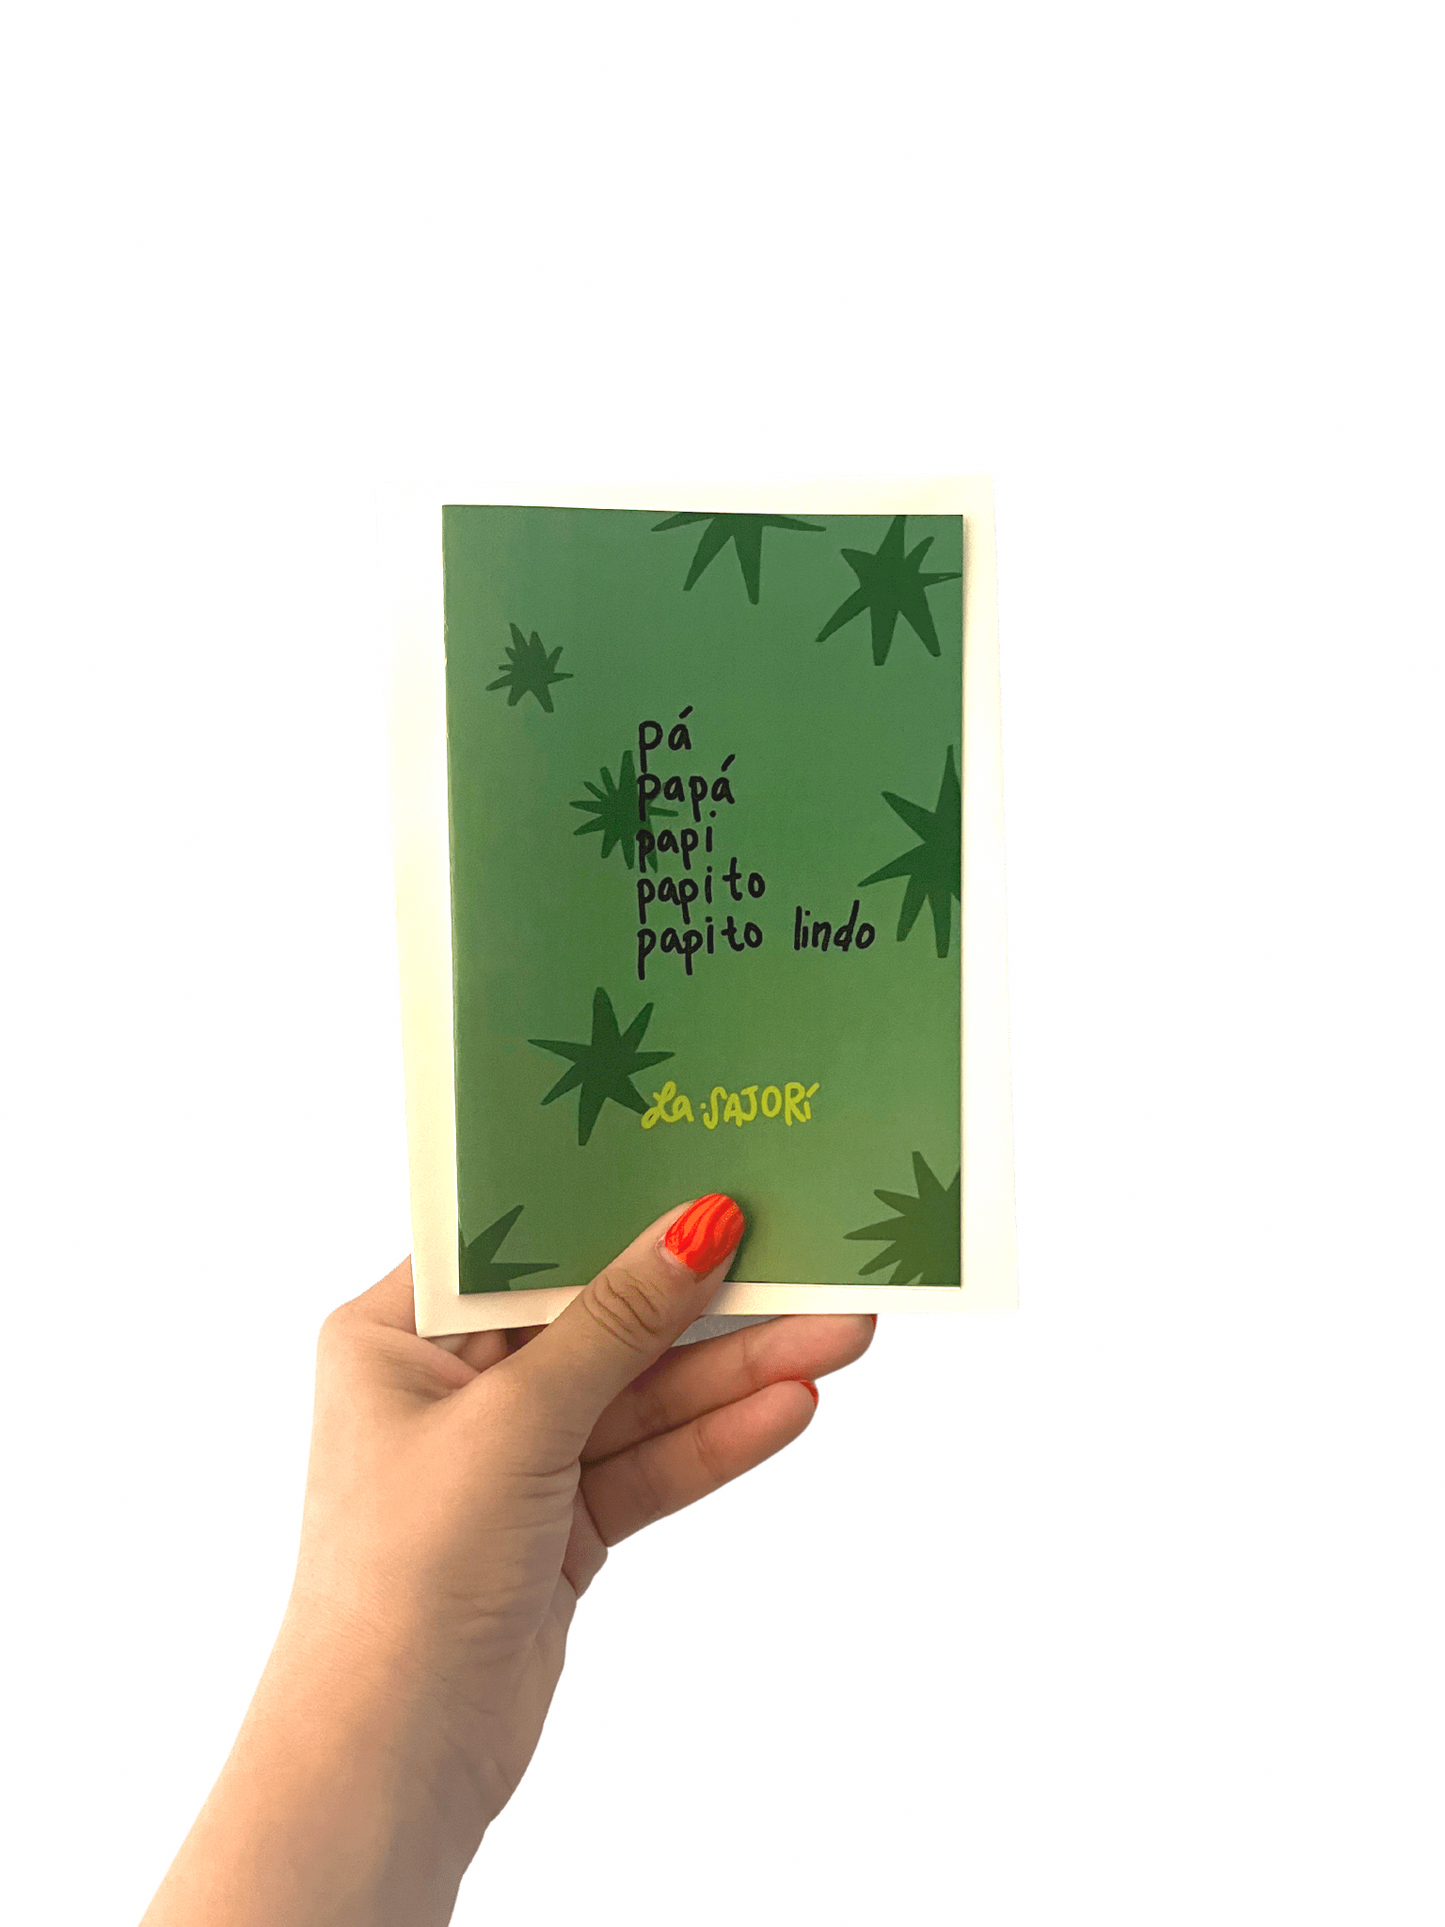 pá
papá
papi
papito
papito lindo
La SAJORí